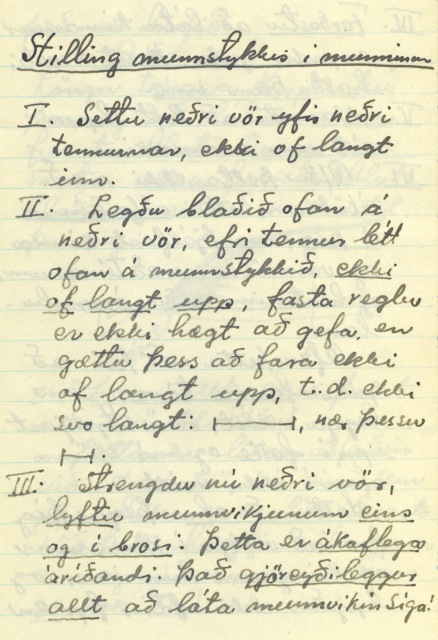 Stilling munnstykkis í munninum
I. Settu neðri vör yfir neðri
tennurnar, ekki of langt
inn.
II. Legðu blaðið ofan á
neðri vör, efri tennur létt
ofan á munnstykkið, ekki
of langt upp, fasta reglu
er ekki hægt að gefa, en
gættu þess að fara ekki
of langt upp, t.d. ekki
svo langt: |———|, nær þessu
|—|.
III. Strengdu nú neðri vör,
lyftu munnvikjunum eins
og í brosi. Þetta er ákaflega
áríðandi. Það gjöreyðileggur
allt að láta munnvikin síga!